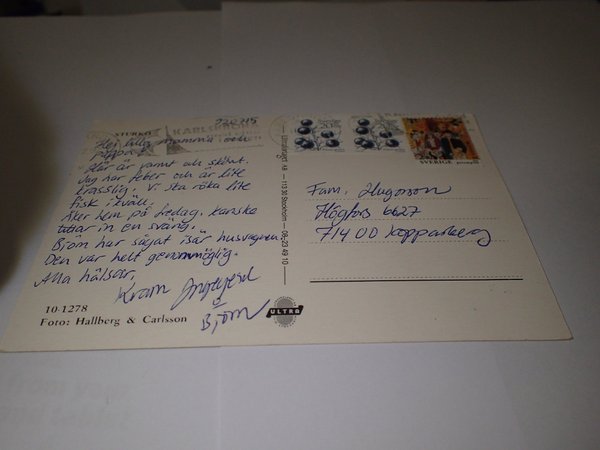 920715
STURKÖ
KARLSKRONA
Hej lilla mamma och
pappa!
Här är varmt och skönt.
Jag har feber och är lite
krasslig. Vi ska röka lite
fisk ikväll.
Åker hem på fredag. Kanske
tittar in en sväng.
Björn har sågat isär husvagnen.
Den var helt genommöglig.
Alla hälsar,
Kram Ingegerd
Björn
10-1278
Foto: Hallberg & Carlsson
ULTRA
113 30 Stockholm - 08-23 49 10
SVERIGE
Fam. Hugoson
Högfors 6627
714 00 Kopparberg